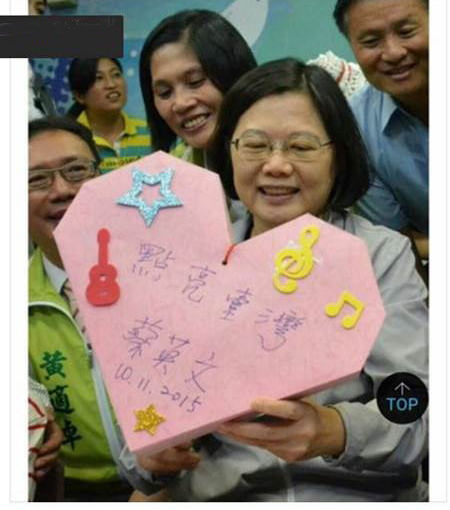 點亮臺灣
蔡英文
10.11.2015
黃適卓
TOP